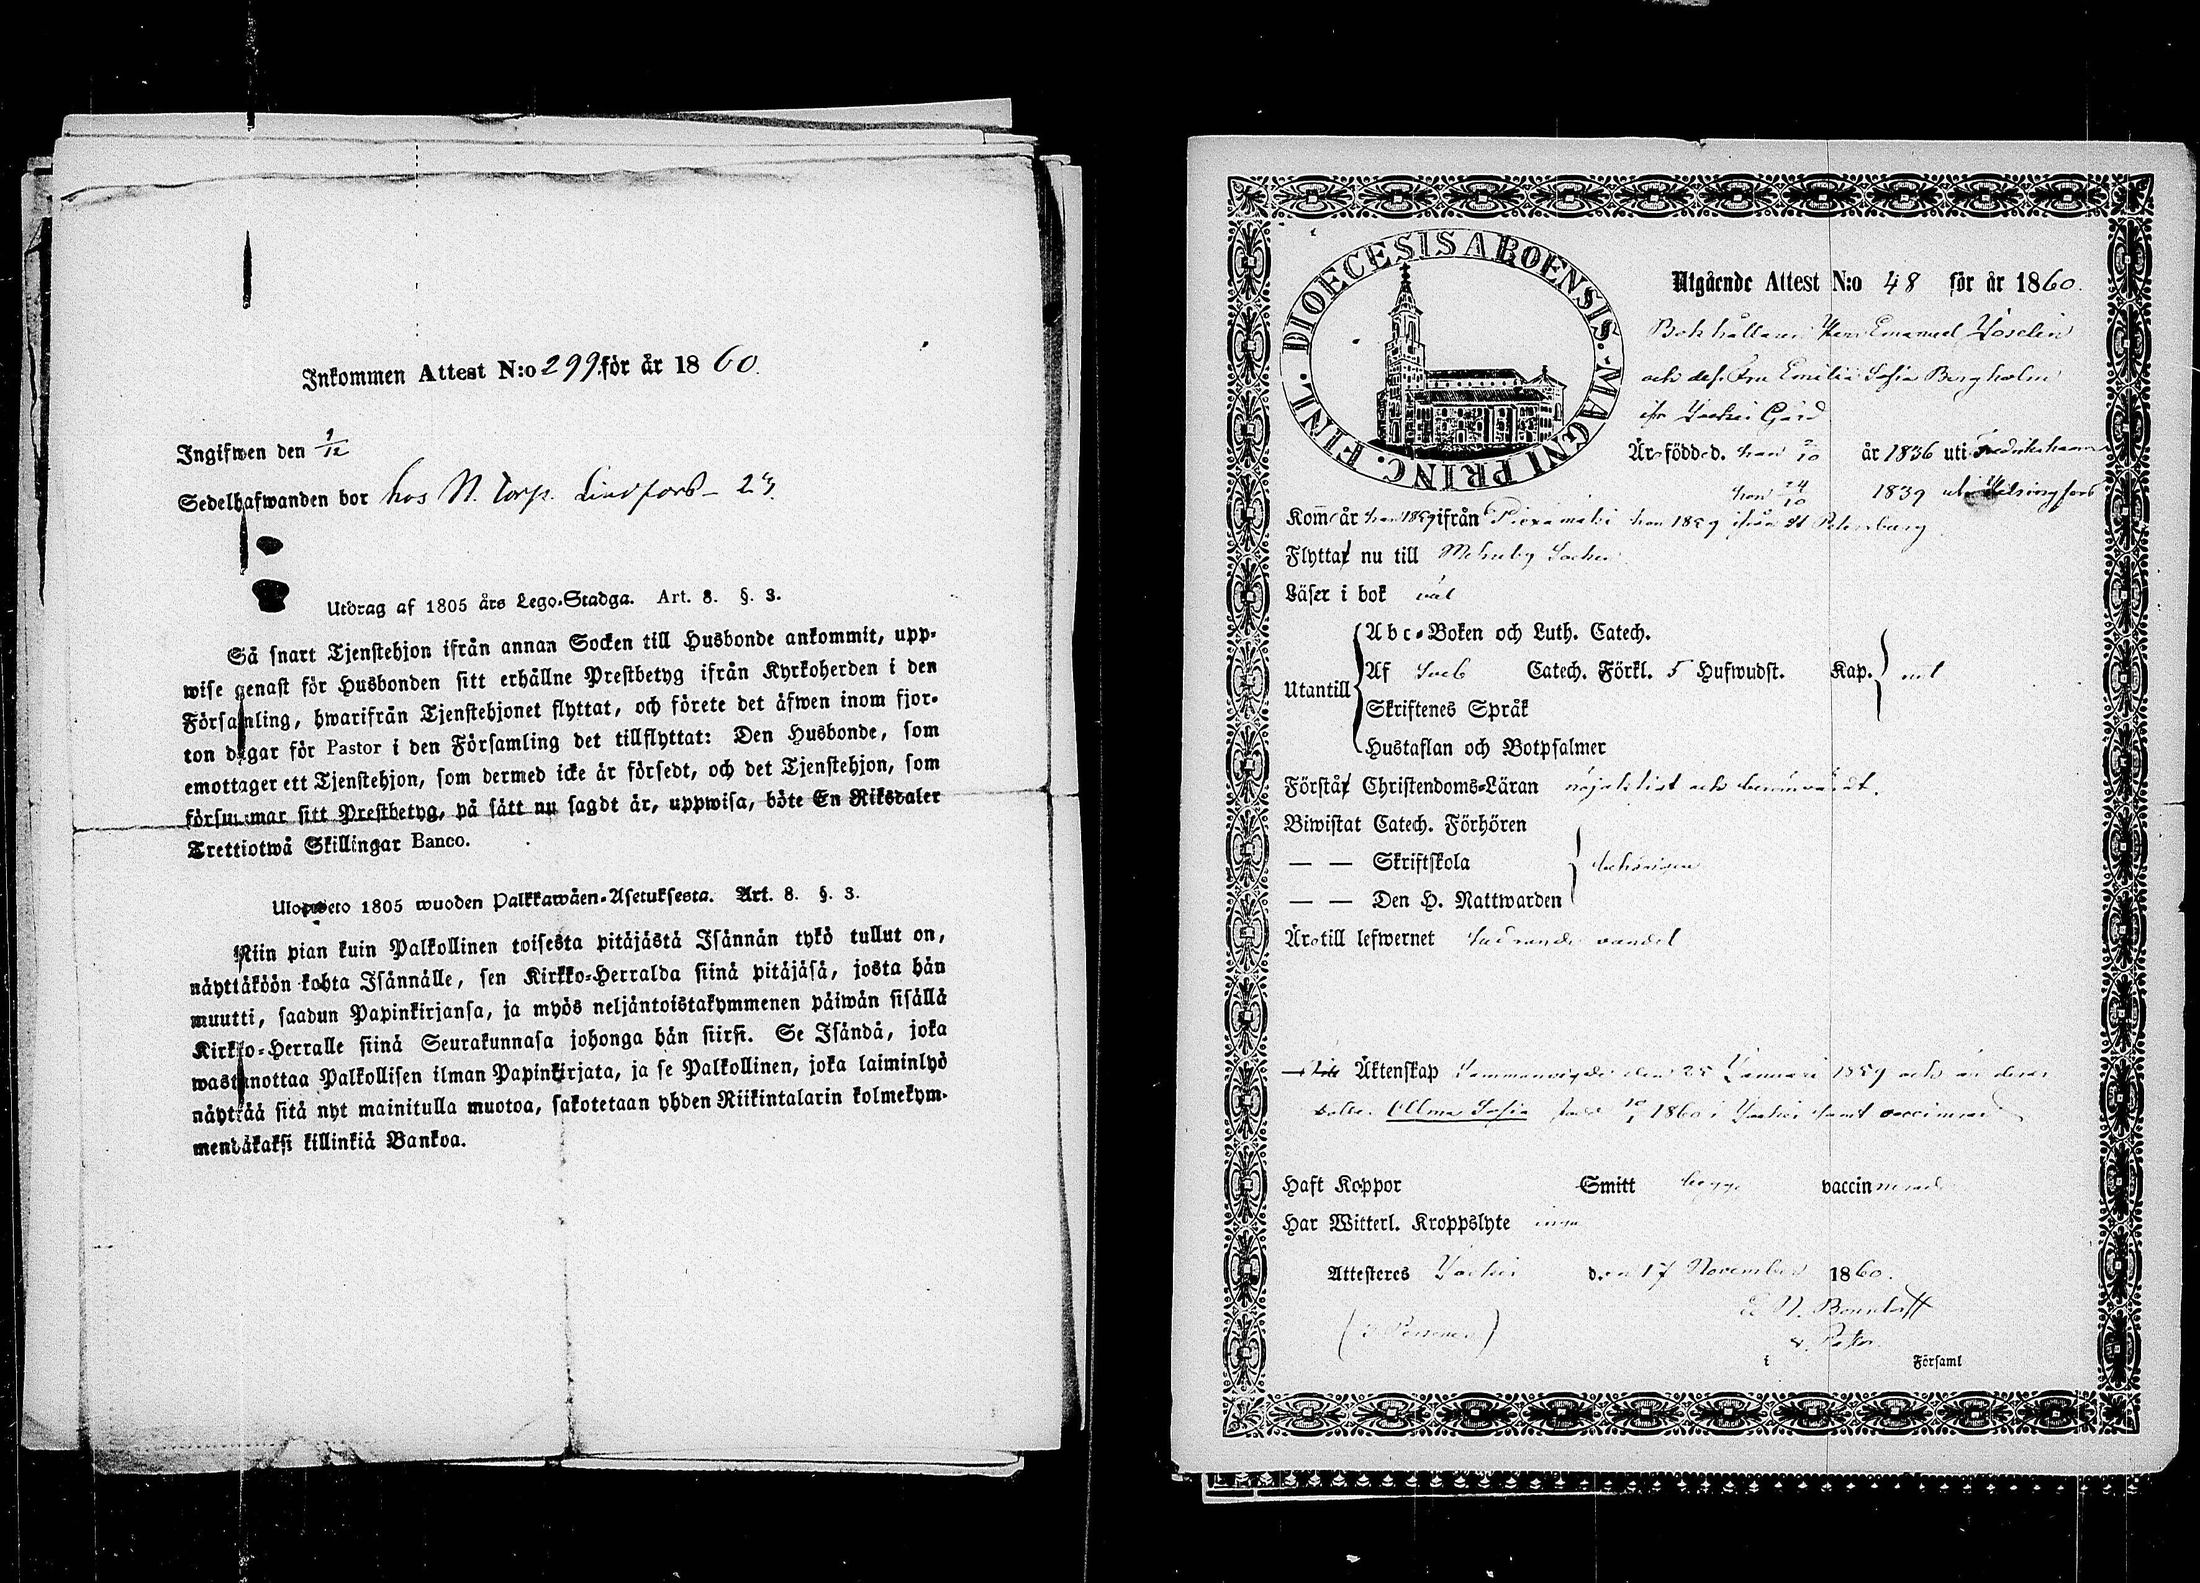 Inkommen Attest N:o 299 för år 1860.
Ingifwen den 1/12
Sedelhafwanden bor hos N. Torp. Lindfors - 24.
Utdrag af 1805 års Lego-Stadga. Art. 8. §. 3.
Så snart Tjenstehjon ifrån annan Socken till Husbonde ankommit, upp-
wise genast för Husbonden sitt erhållne Prestbetyg ifrån Kyrkoherden i den
Församling, hwarifrån Tjenstehjonet flyttat, och förete det äfwen inom fjor-
ton dagar för Pastor i den Församling det tillflyttat: Den Husbonde, som
emottager ett Tjenstehjon, som dermed icke är försedt, och det Tjenstehjon, som
försummar sitt Prestbetyg, på sätt nu sagdt är, uppwisa, böte En Riksdaler
Trettiotwå Skillingar Banco.
Ulosweto 1805 wuoden Palkkawäen-Asetuksesta. Art. 8. §. 3.
Niin pian kuin Palkollinen toisesta pitäjästä Isännän tykö tullut on,
näyttäköön kohta Isännälle, sen Kirkko-Herralda siinä pitäjäsä, josta hän
muutti, saadun Papinkirjansa, ja myös neljäntoistakymmenen päiwän sisällä
Kirkko-Herralle siinä Seurakunnasa johonga hän siirsi. Se Isändä, joka
wastanottaa Palkollisen ilman Papinkirjata, ja se Palkollinen, joka laiminlyö
näyttää sitä nyt mainitulla muotoa, sakotetaan yhden Riikintalarin kolmekym-
mendäkaksi killinkiä Bankoa.
DIOECESIS ABOENSIS. MAGNI PRINC. FINL.
Utgående Attest N:o 48 för år 1860.
Bokhållaren Herr Emanuel
och dess Fru Emilia Sofia Bergholm
ifr Jockis Gård
Äro födde d. han 2/10 år 1836 uti Fredrikshamn
hon 24/10 1839 uti Helsingfors
Komne år han 1859 ifrån Piexämäki hon 1859 ifrån St Petersburg
Flytta nu till Socken
Läser i bok väl
Utantill
Abc-Boken och Luth. Catech.
Af Sveb Catech. Förkl. 5 Hufwudst. Kap. väl
Skriftenes Språk
Hustaflan och Botpsalmer
Förstå Christendoms-Läran nöjaktigt och berömvärdt.
Biwistat Catech. Förhören
— — Skriftskola behörigen
— — Den H. Nattwarden
Äro till lefwernet hedrande vandel
Äktenskap Sammanvigde den 25 Januari 1859 och är deras
dotter Ellma Sofia född 10/1 1860 i Jockis samt vaccinerad
Haft Koppor Smitt begge vaccinerade
Har Witterl. Kroppslyte inga
Attesteres Jockis den 17 November 1860.
(3 Personer) E. N. Bonsdorff
v. Pastor
i Församl